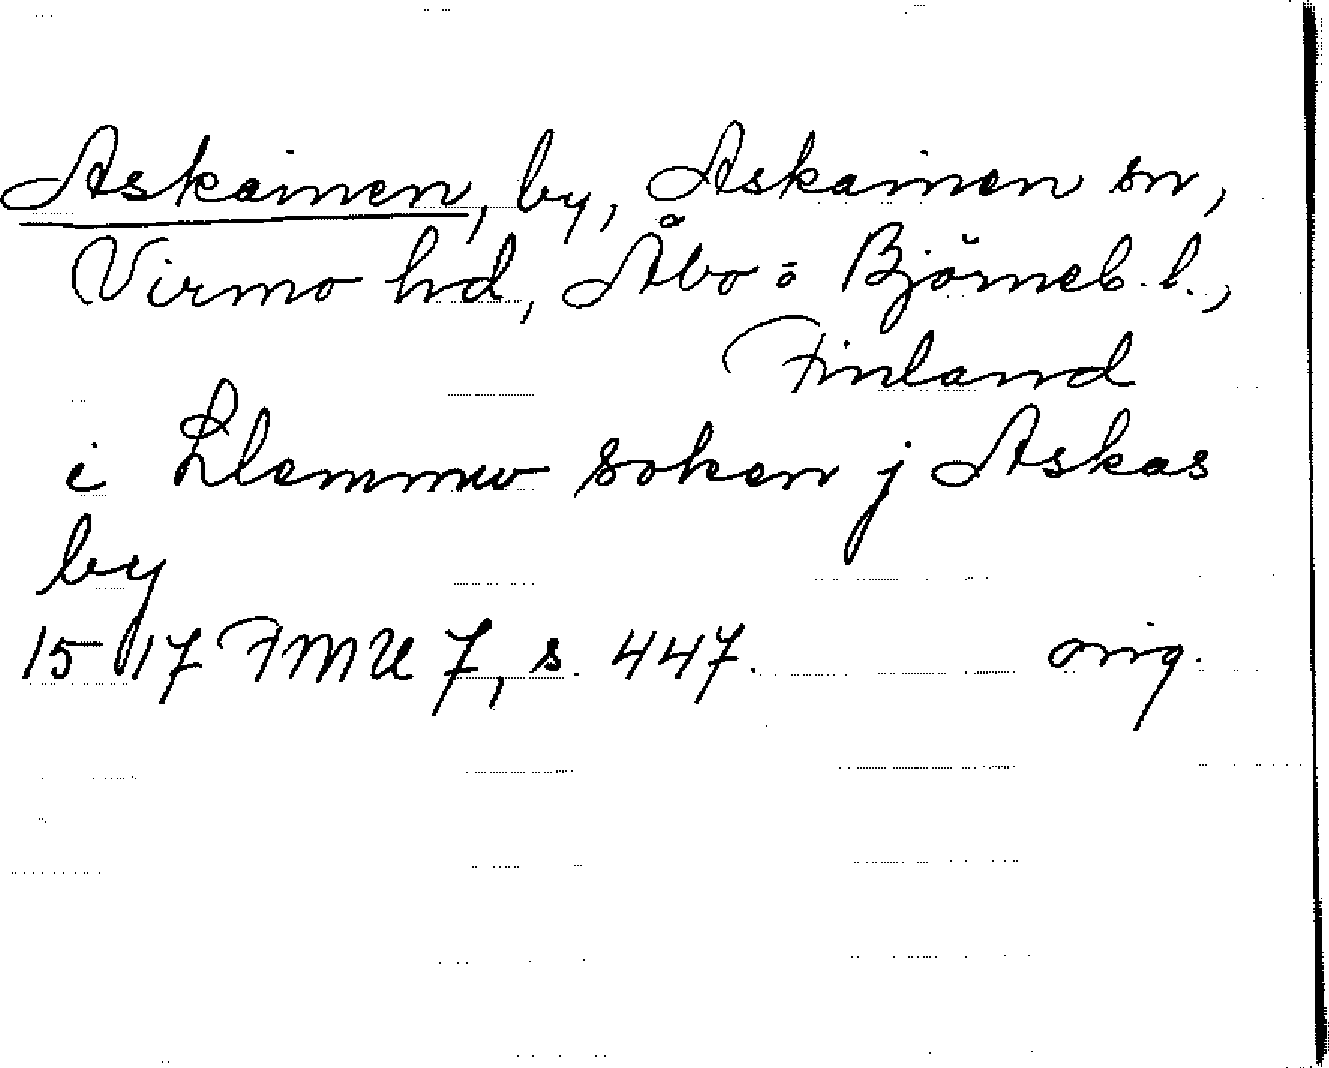 Askainen, by, Askainen sn,
Virmo hd, Åbo o Björneb. l.,
Finland
i Llemmw soken j Askas
by
1517 FMU 7, s. 447. orig.